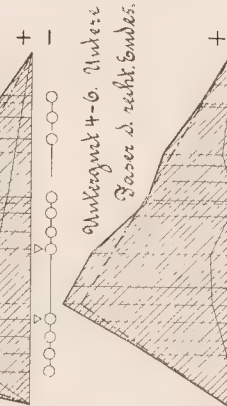 +
−
Untergurt 4-6. Untere
Faser d. recht. Endes.
+